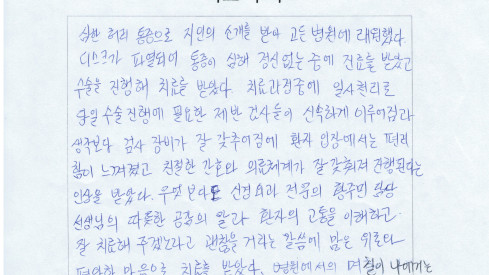 심한 허리 통증으로 지인의 소개를 받아 고든 병원에 래원했다.
디스크가 파열되어 통증이 심해 정신없는 중에 진료를 받았고
수술을 진행해 치료를 받았다. 치료과정중에 일사천리로
당일 수술진행에 필요한 제반 검사들이 신속하게 이루어짐과
생각보다 검사 장비가 잘 갖추어짐에 환자 입장에서는 편리
함이 느껴졌고 친절한 간호와 의료체계가 잘 갖춰져 진행된다는
인상을 받았다. 무엇보다도 신경외과 전문의 황주민
선생님의 따뜻한 공감의 말과 환자의 고통을 이해하고
잘 치료해 주겠노라고 괜찮을 거라는 말씀에 많은 위로와
편안한 마음으로 치료를 받았다. 병원에서의 며칠이 나에게는